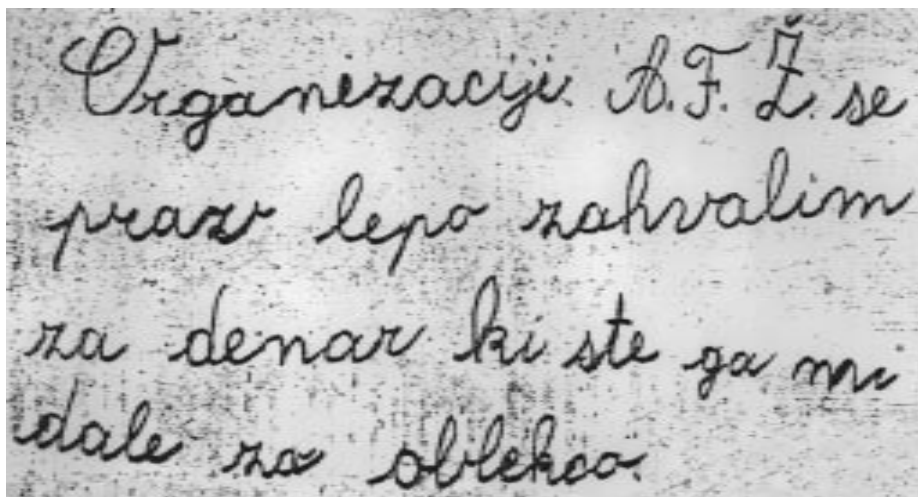 Organizaciji A.F.Ž. se
prav lepo zahvalim
za denar ki ste ga mi
dale za obleko.